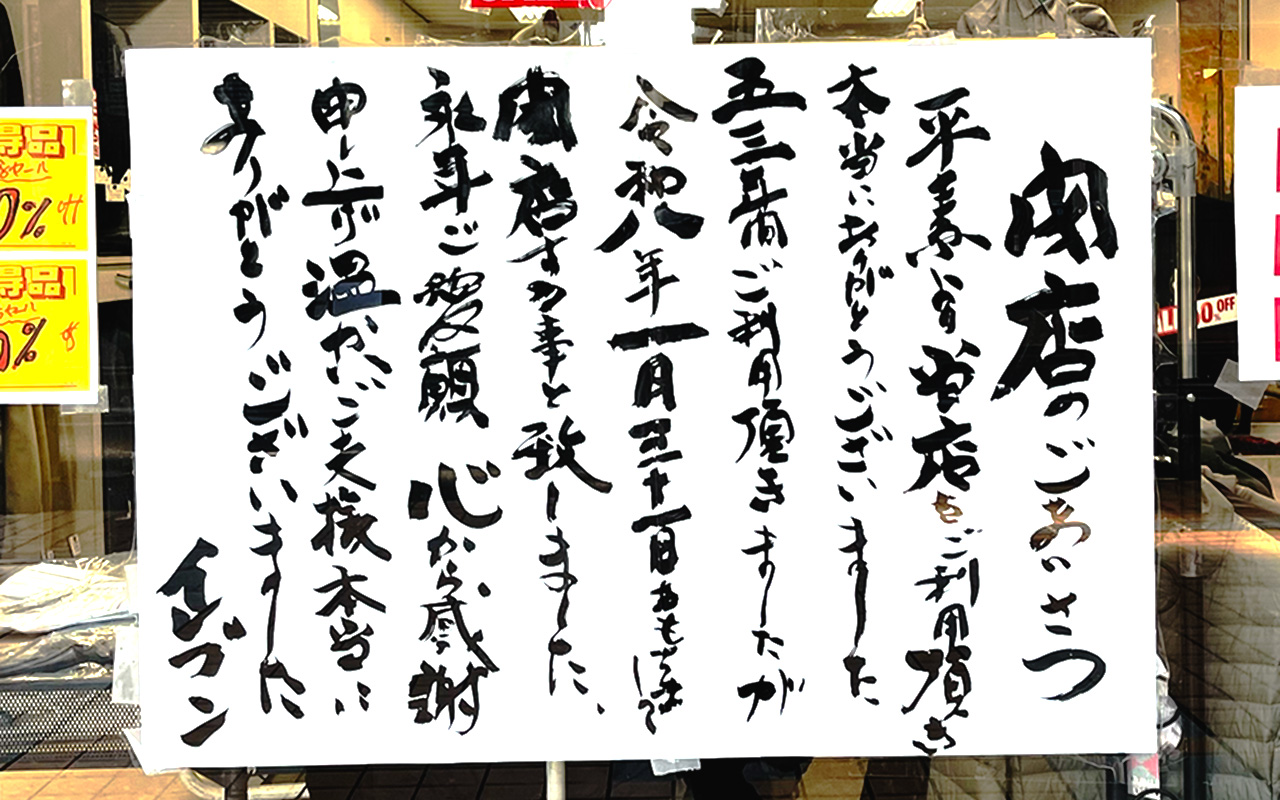 閉店のごあいさつ
平素 当店をご利用頂き
本当にありがとうございました
五三年間ご利用頂きましたが
令和八年一月三十一日をもちまして
閉店する事と致しました、
永年ご愛顧 心から感謝
申し上げ温かいご支援本当に
ありがとうございました
イレブン
得品
0%
得品
0%
0% OFF